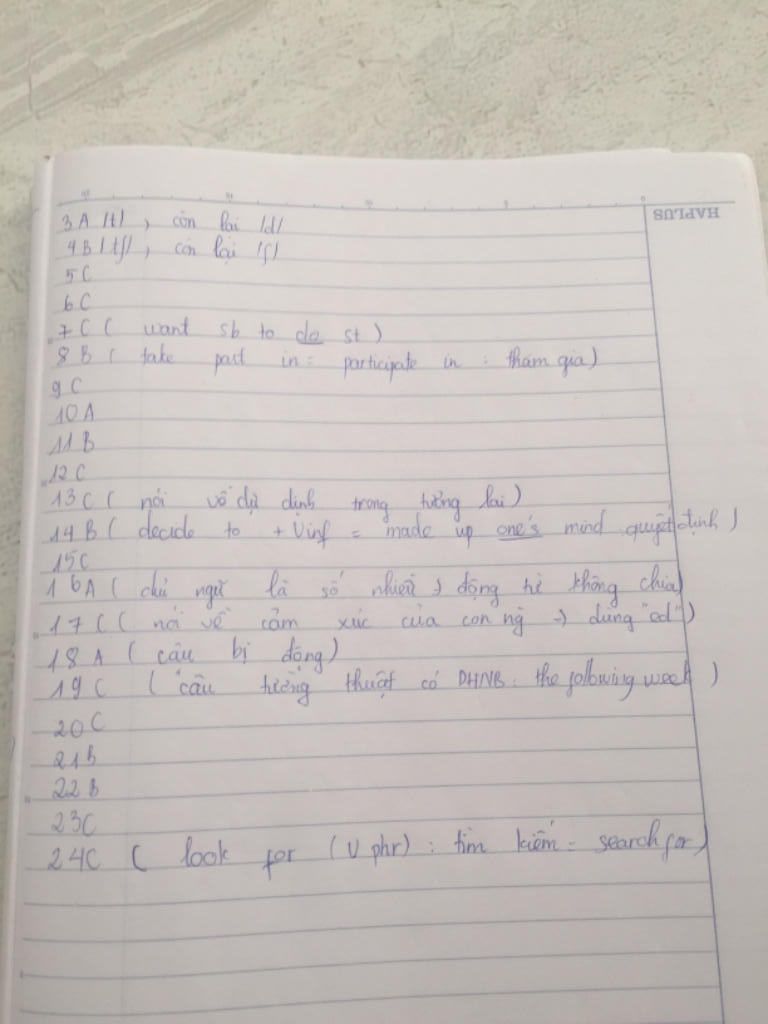 HAPLUS
3 A /t/ , còn lại /d/
4 B /tʃ/ , còn lại /ʃ/
5 C
6 C
7 C ( want sb to do st )
8 B ( take part in = participate in : tham gia )
9 C
10 A
11 B
12 C
13 C ( nói về dự định trong tương lai )
14 B ( decide to + Vinf = made up one's mind quyết định )
15 C
16 A ( chủ ngữ là số nhiều → động từ không chia )
17 C ( nói về cảm xúc của con ng → dùng "ed" )
18 A ( câu bị động )
19 C ( câu tường thuật có DHNB : the following week )
20 C
21 B
22 B
23 C
24 C ( look for ( V phr ) : tìm kiếm = search for )